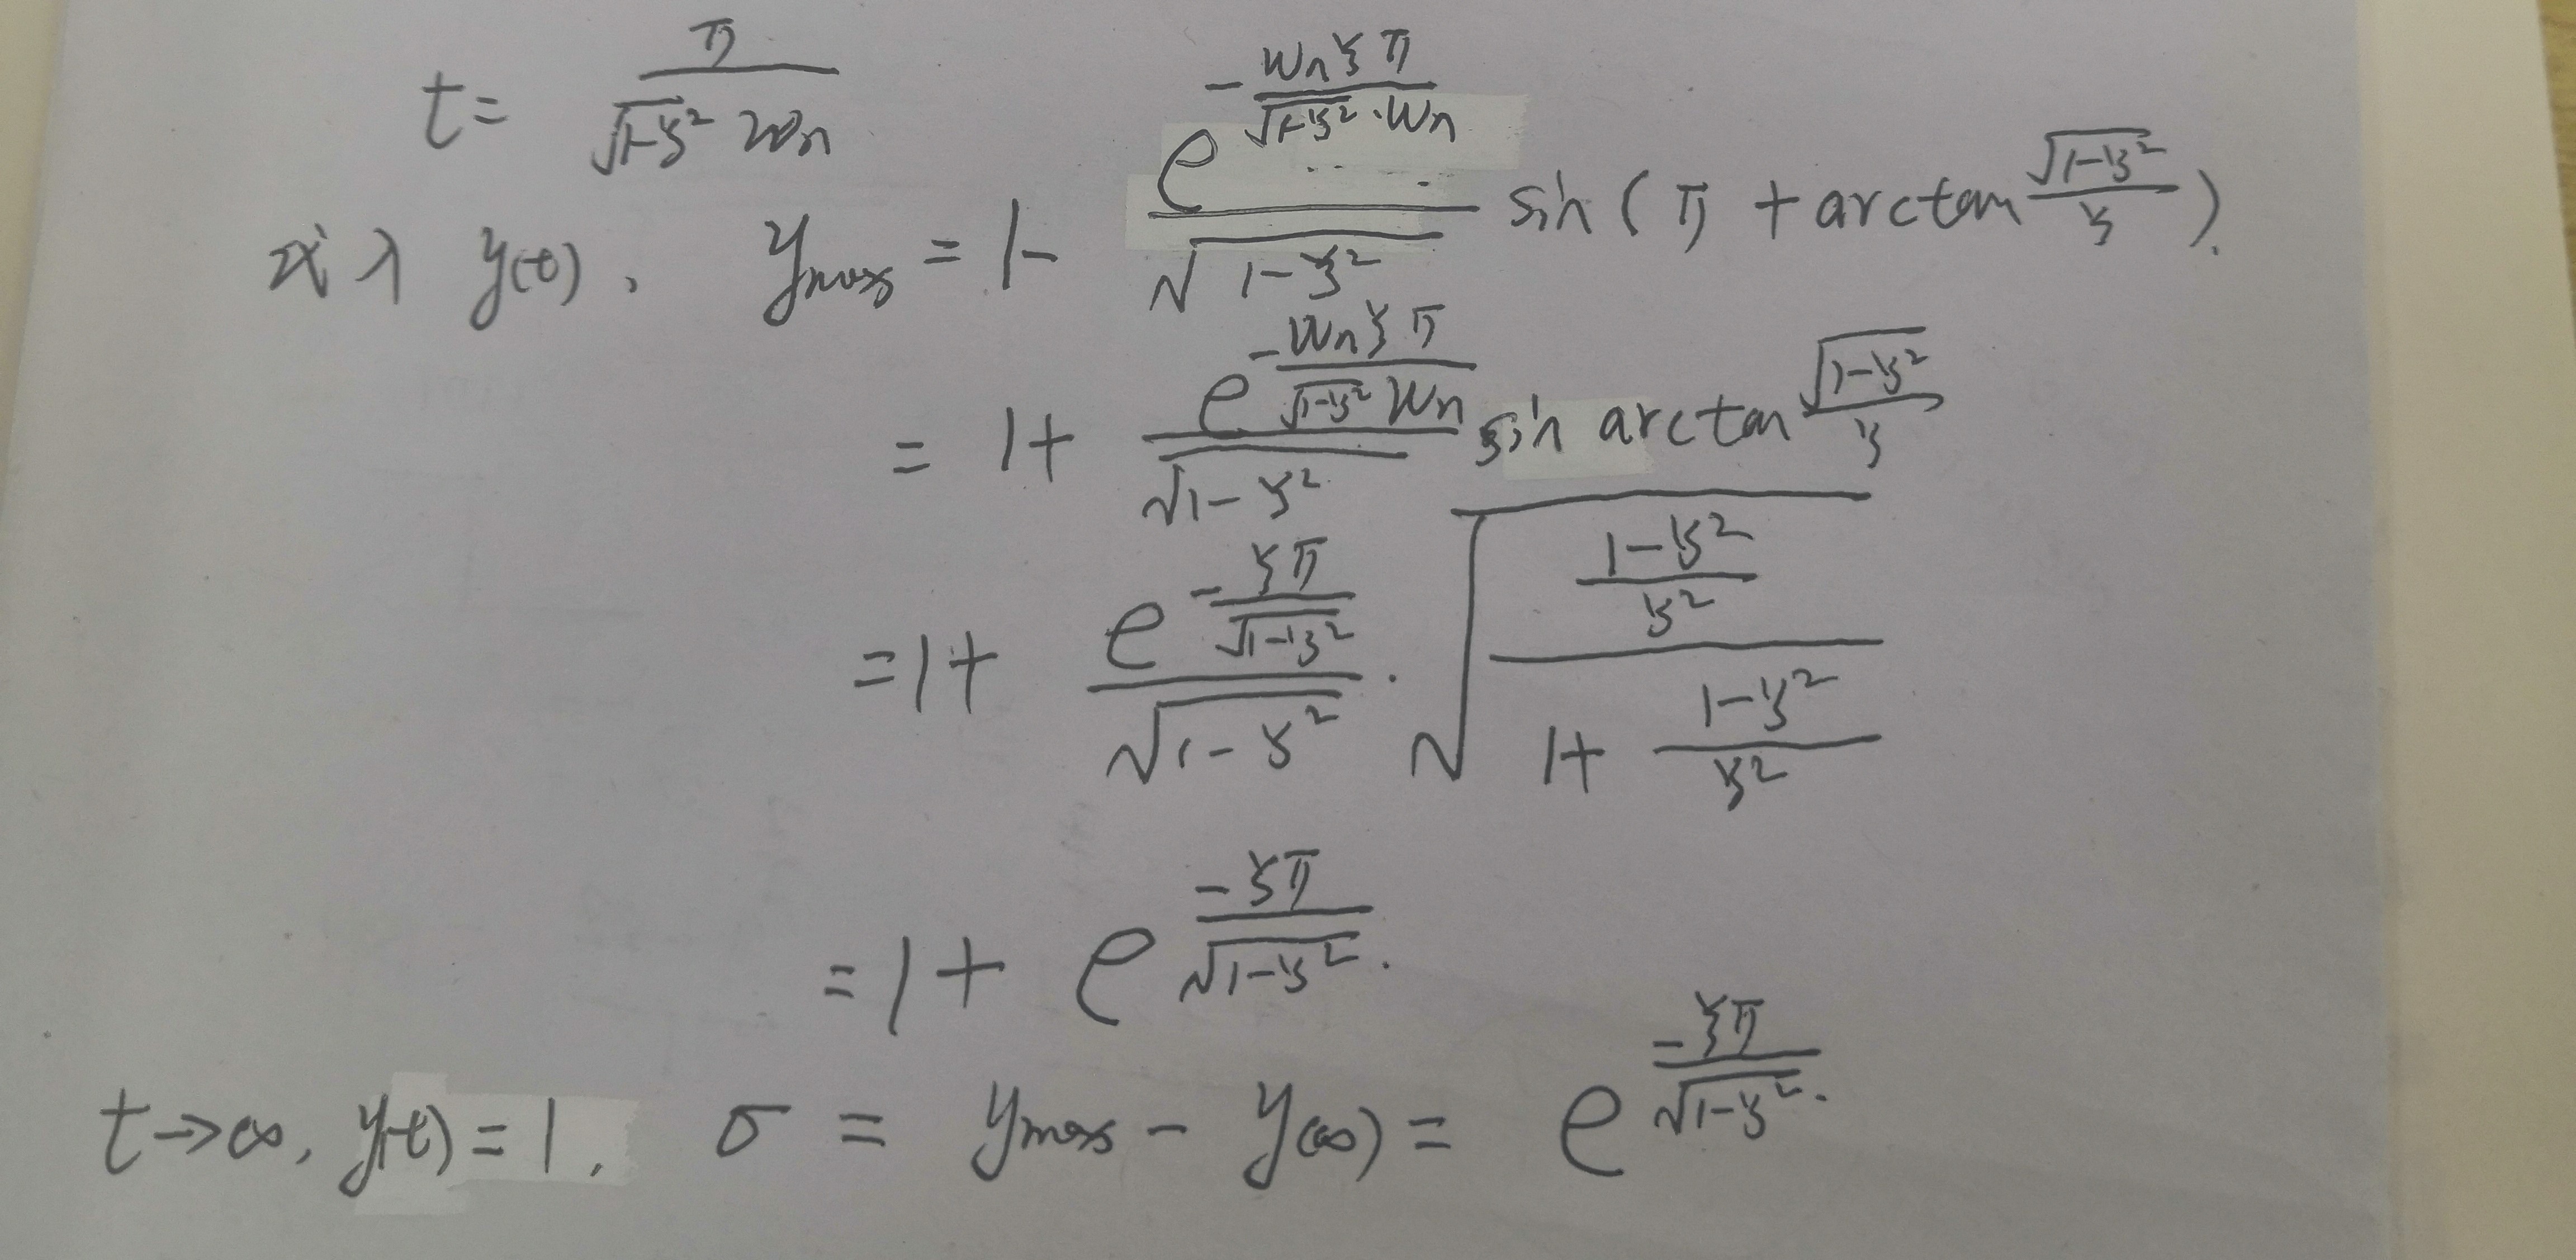 t = \frac{π}{\sqrt{1-ζ^2} Wn}
代入 y(t), y_{max} = 1 - \frac{e^{-\frac{Wnζπ}{\sqrt{1-ζ^2}·Wn}}}{\sqrt{1-ζ^2}} sin(π + arctan\frac{\sqrt{1-ζ^2}}{ζ}).
= 1 + \frac{e^{-\frac{Wnζπ}{\sqrt{1-ζ^2}Wn}}}{\sqrt{1-ζ^2}} sin arctan\frac{\sqrt{1-ζ^2}}{ζ}
= 1 + \frac{e^{-\frac{ζπ}{\sqrt{1-ζ^2}}}}{\sqrt{1-ζ^2}} · \sqrt{\frac{\frac{1-ζ^2}{ζ^2}}{1+\frac{1-ζ^2}{ζ^2}}}
= 1 + e^{\frac{-ζπ}{\sqrt{1-ζ^2}}}.
t→∞, y(t) = 1, σ = y_{max} - y(∞) = e^{\frac{-ζπ}{\sqrt{1-ζ^2}}}.